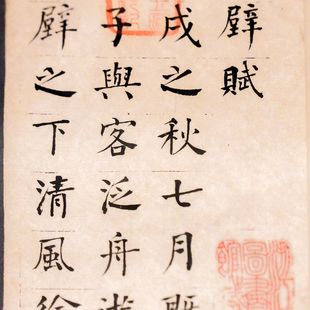 壁賦
戌之秋七月既
子與客泛舟遊
壁之下清風徐